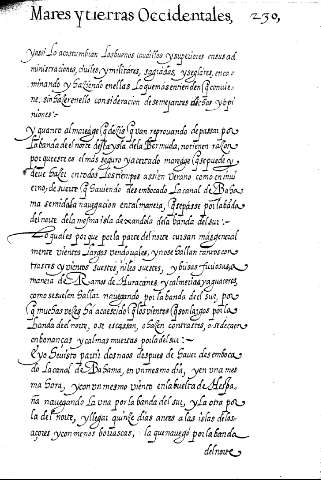 Mares y tierras Occidentales, 230,
y assi Lo acostumbran Los buenos caudillos y superiores en sus ad
ministraciones, ciuiles, y militares, sagradas, y seglares, enca
minando y haziendo en ellas Lo que mas entienden q conuie
ne, sin hazer en ello consideracion de semejantes dichos y opi
niones:~
y quanto al nauegar q dezis q van reprouando de passar por
La banda del norte desta ysla de la Bermuda, no tienen razon
porque este es el mas seguro y acertado nauegar q se puede y
deue hazer en todos los tiempos assi en Verano como en inui
erno, de suerte q hauiendo desembocado La canal de Baha
ma se mida la nauegacion en tal manera, q se passe por la banda
del norte de la mesma isla dexandola de la banda del sur:~
Lo qual es porque por la parte del norte cursan mas general
mente vientos Largos vendauales, y no se hallan tan rros con
trastes y vientos suestes, y lessuestes, y brisas furiosas a
manera de Ramos de Huracanes y calmerias y aguaceros,
como se suelen hallar nauegando por la banda del sur, por
q muchas vezes ha acaescido q los vientos q son largos por la
banda del norte, o se escassan, o hazen contrastes, o se decaen
en bonanças y calmas muertas por la del sur:~
E yo he visto partir dos naos despues de hauer desemboca
do La canal de Bahama, en vn mesmo dia, y en vna mes
ma hora, y con vn mesmo viento en la buelta de Hespa
ña nauegando La vna por la banda del sur, y La otra por
la del norte, y llegar quinze dias antes a las islas de los
açores y con menos borrascas, la que nauegó por la banda
del norte